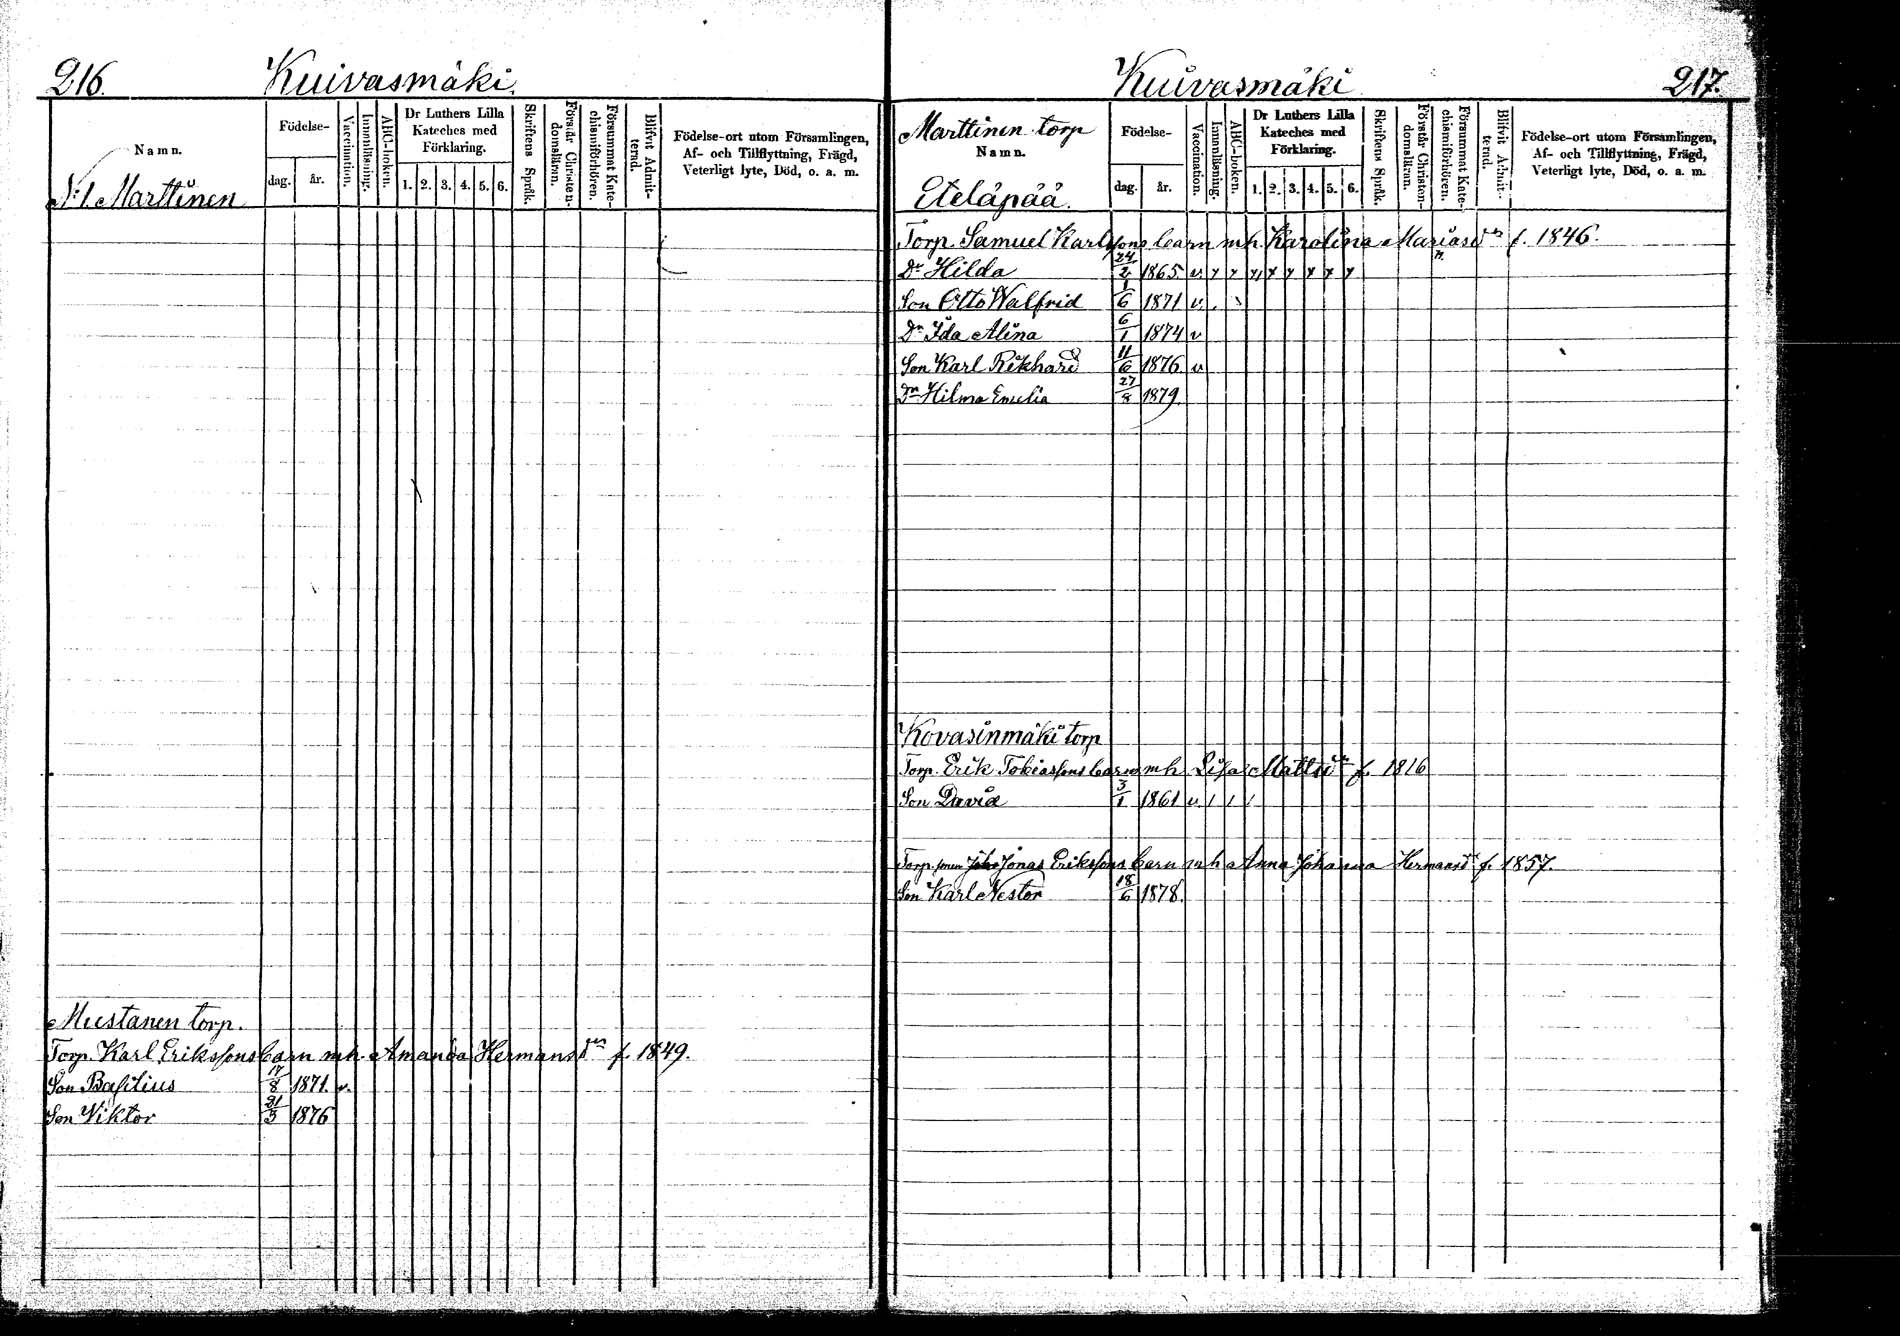 216. Kuivasmäki.
Namn.
Födelse-
dag. år.
Vaccination.
Innanläsning.
ABC-boken.
Dr Luthers Lilla Kateches med Förklaring.
1. 2. 3. 4. 5. 6.
Skriftens Språk.
Förstår Christendomsläran.
Försummat Katechismiförhören.
Blifvit Admitterad.
Födelse-ort utom Församlingen,
Af- och Tillflyttning, Frägd,
Veterligt lyte, Död, o. a. m.
N:1. Marttinen
Mustanen torp.
Torp. Karl Erikssons barn m.h. Amanda Hermansd:r f. 1849.
Son Basilius 17/8 1871. v.
Son Viktor 21/3 1876
Kuivasmäki 217.
Marttinen torp
Namn.
Eteläpää.
Födelse-
dag. år.
Vaccination.
Innanläsning.
ABC-boken.
Dr Luthers Lilla Kateches med Förklaring.
1. 2. 3. 4. 5. 6.
Skriftens Språk.
Förstår Christendomsläran.
Försummat Katechismiförhören.
Blifvit Admitterad.
Födelse-ort utom Församlingen,
Af- och Tillflyttning, Frägd,
Veterligt lyte, Död, o. a. m.
Torp. Samuel Karlssons barn m.h. Karolina Mariasd:r f. 1846.
Dr Hilda 24/2 1865. v. x x x x x x x x
Son Otto Walfrid 1/6 1871 v.
Dr Ida Alina 6/1 1874 v
Son Karl Rikhard 11/6 1876 v
Dr Hilma Emelia 27/8 1879.
Kovasinmäki torp
Torp. Erik Tobiassons barn m.h. Lisa Mattsd:r f. 1816
Son David 3/1 1861 v / / /
Torp. sonen Jonas Erikssons barn m h Anna Johanna Hermansd:r f. 1857.
Son Karl Nestor 18/6 1878.